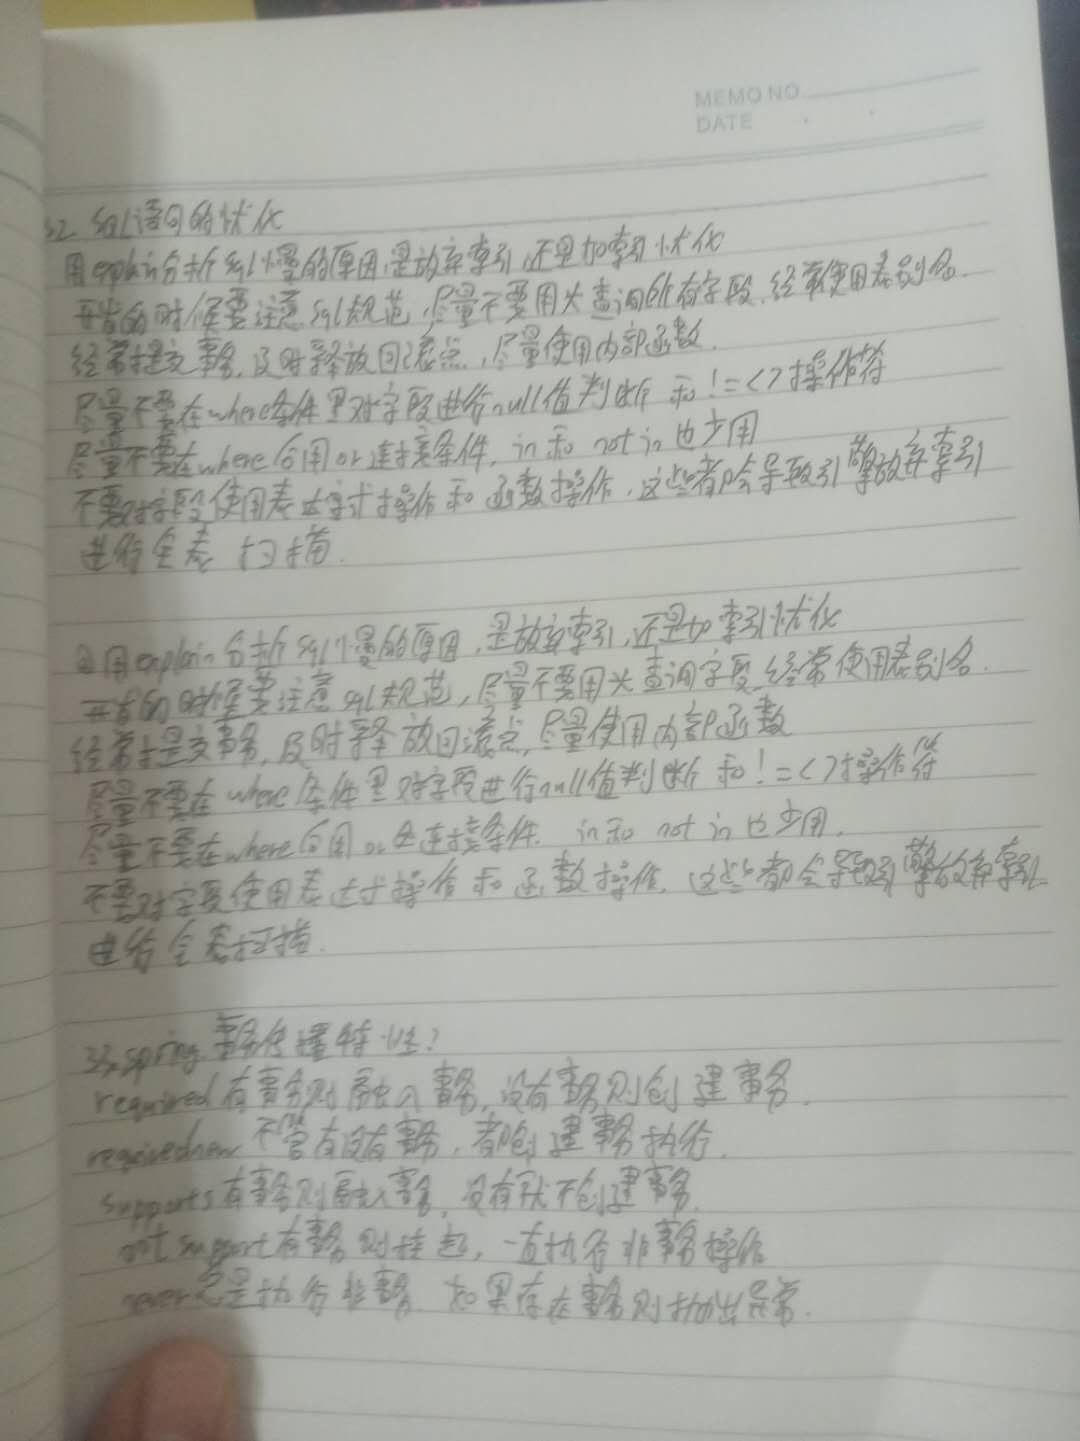 MEMO NO.
DATE
32. sql语句的优化
用explain分析sql慢的原因,是放弃索引,还是加索引优化
开发的时候要注意sql规范,尽量不要用*查询所有字段.经常使用表别名.
经常提交事务,及时释放回滚点,尽量使用内部函数.
尽量不要在where条件里对字段进行null值判断 和!=<>操作符
尽量不要在where句用or连接条件, in和 not in也少用
不要对字段使用表达式操作和函数操作.这些都会导致引擎放弃索引
进行全表 扫描.
②用explain分析sql慢的原因,是放弃索引,还是加索引优化
开发的时候要注意sql规范,尽量不要用*查询字段,经常使用表别名.
经常提交事务,及时释放回滚点,尽量使用内部函数
尽量不要在where条件里对字段进行null值判断 和!=<>操作符
尽量不要在where句用or连接条件. in和 not in也少用.
不要对字段使用表达式操作和函数操作,这些都会导致引擎放弃索引
进行全表扫描.
33.spring事务传播特性?
required有事务则融入事务,没有事务则创建事务.
requirednew不管有没有事务,都创建事务执行.
supports有事务则融入事务,没有就不创建事务.
not support有事务则挂起,一直执行非事务操作
never总是执行非事务 如果存在事务则抛出异常.